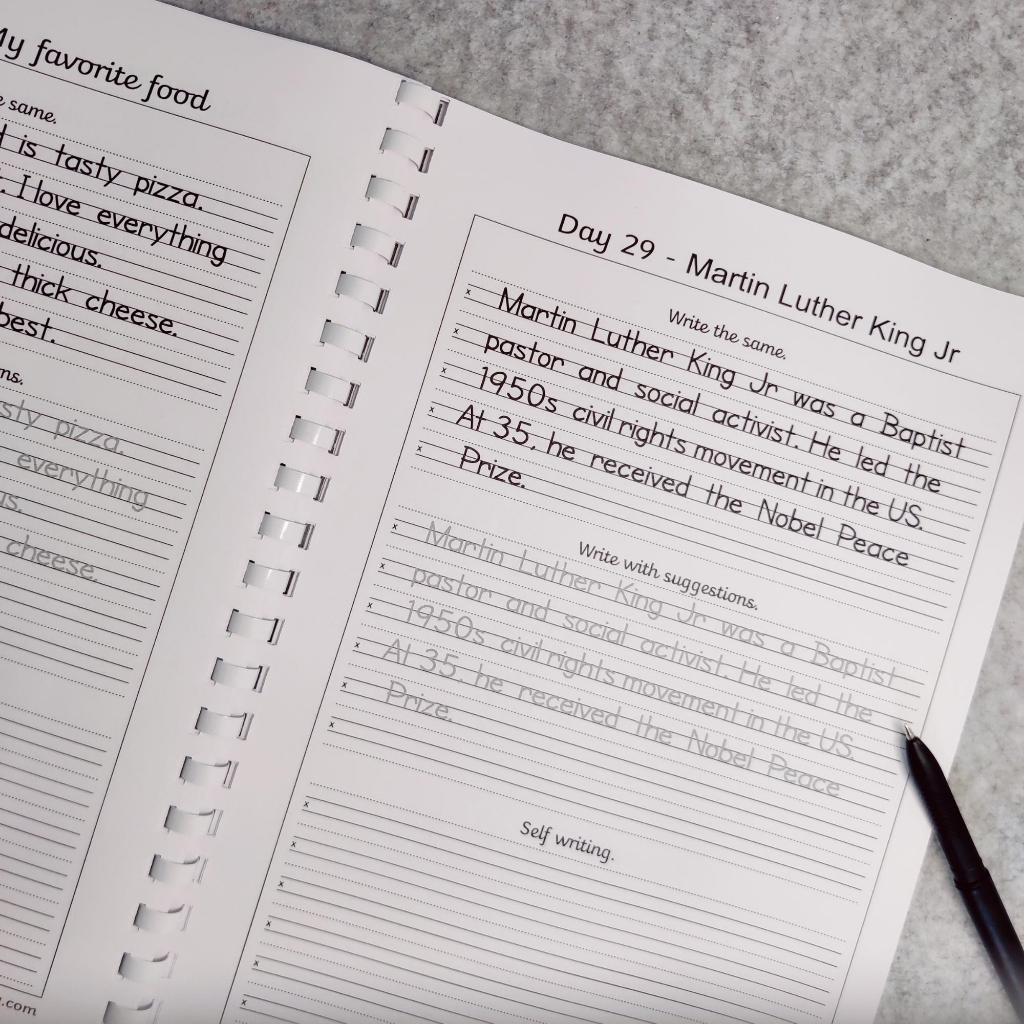 My favorite food
same.
is tasty pizza.
I love everything
delicious.
thick cheese.
best.
tasty pizza.
everything
cheese.
.com
Day 29 - Martin Luther King Jr
Write the same.
Martin Luther King Jr was a Baptist
pastor and social activist. He led the
1950s civil rights movement in the US.
At 35, he received the Nobel Peace
Prize.
Write with suggestions.
Martin Luther King Jr was a Baptist
pastor and social activist. He led the
1950s civil rights movement in the US.
At 35, he received the Nobel Peace
Prize.
Self writing.